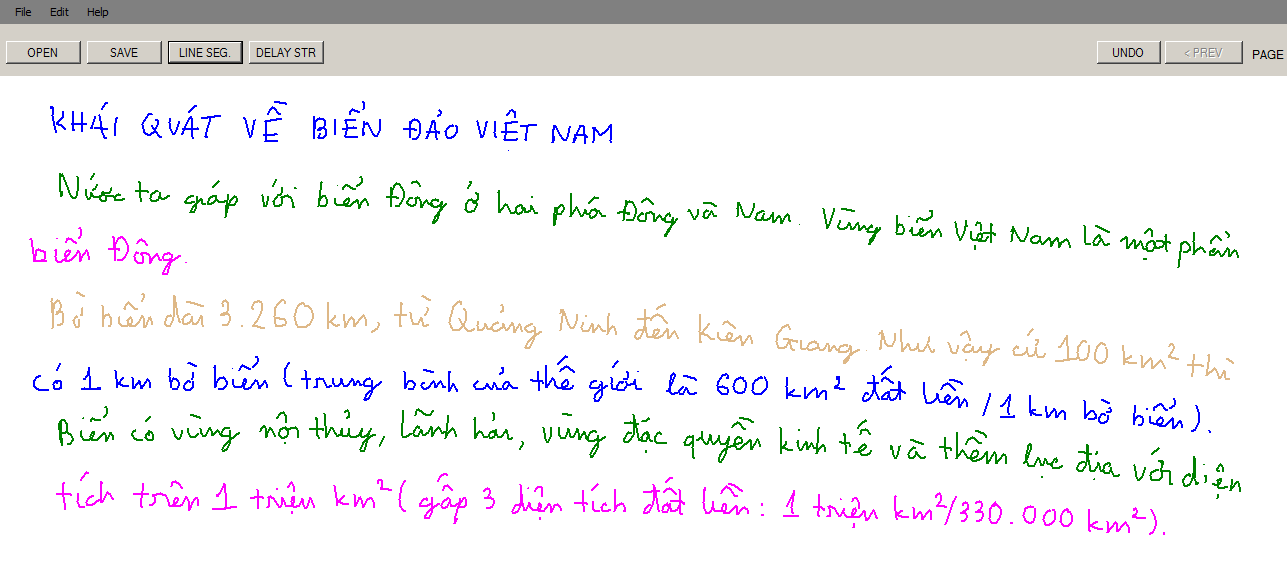 File Edit Help
OPEN SAVE LINE SEG. DELAY STR UNDO < PREV PAGE
KHÁI QUÁT VỀ BIỂN ĐẢO VIỆT NAM
Nước ta giáp với biển Đông ở hai phía Đông và Nam. Vùng biển Việt Nam là một phần
biển Đông.
Bờ biển dài 3.260 km, từ Quảng Ninh đến Kiên Giang. Như vậy cứ 100 km² thì
có 1 km bờ biển (trung bình của thế giới là 600 km² đất liền / 1 km bờ biển).
Biển có vùng nội thủy, lãnh hải, vùng đặc quyền kinh tế và thềm lục địa với diện
tích trên 1 triệu km² (gấp 3 diện tích đất liền: 1 triệu km²/330.000 km²).